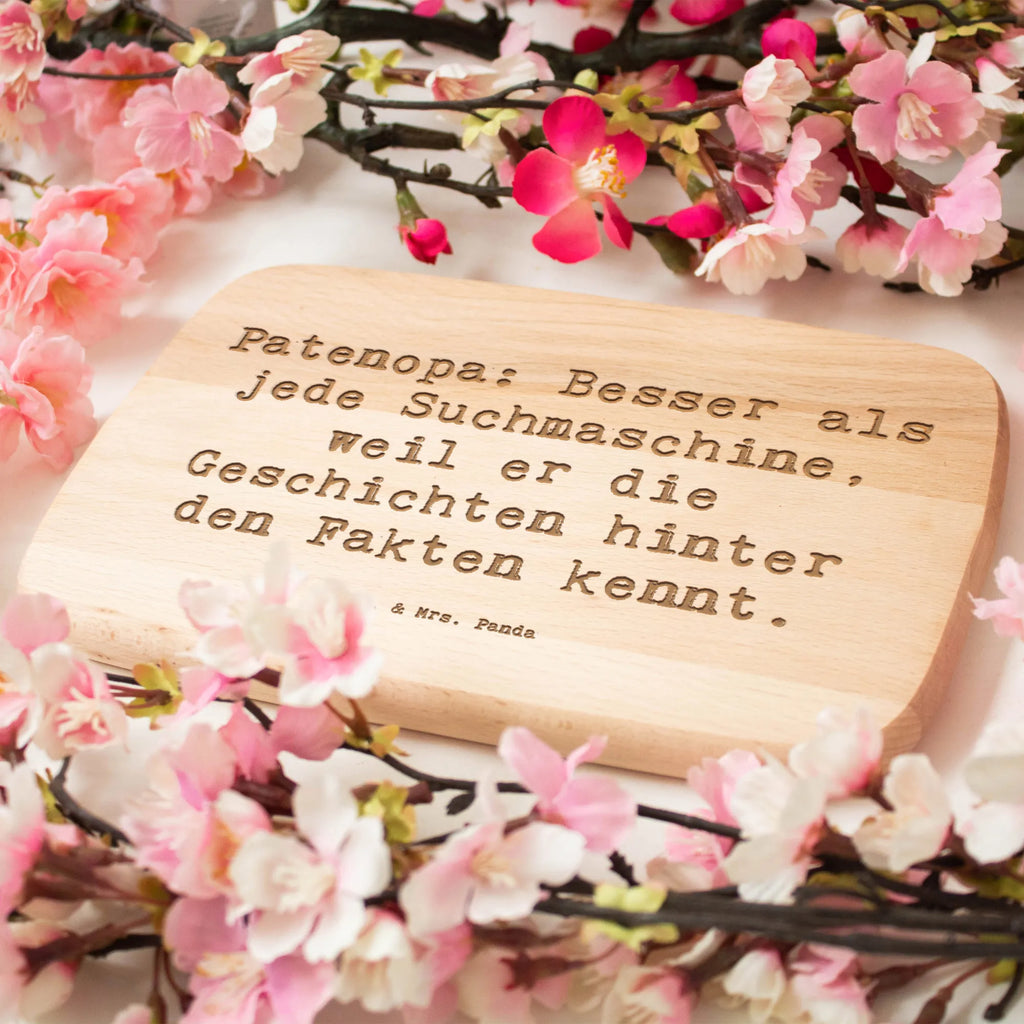 Patenopa: Besser als
jede Suchmaschine,
weil er die
Geschichten hinter
den Fakten kennt.
& Mrs. Panda